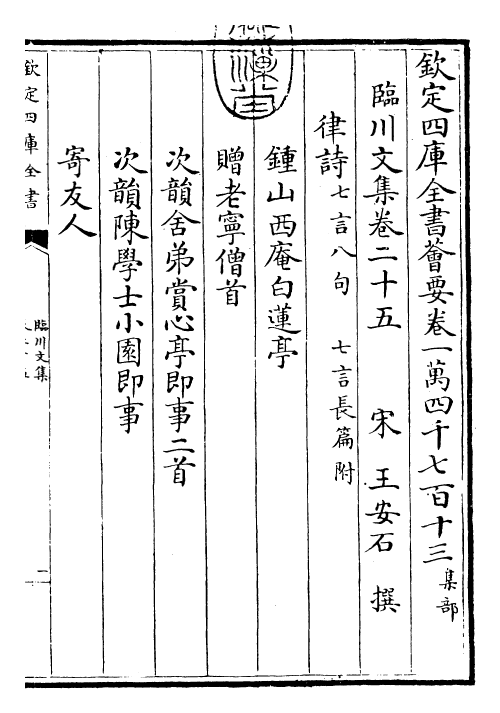 欽定四庫全書薈要卷一萬四千七百十三 集部
臨川文集卷二十五 宋 王安石 撰
律詩 七言八句 七言長篇附
鍾山西庵白蓮亭
贈老寧僧首
次韻舍弟賞心亭即事二首
次韻陳學士小園即事
寄友人
欽定四庫全書
臨川文集
一